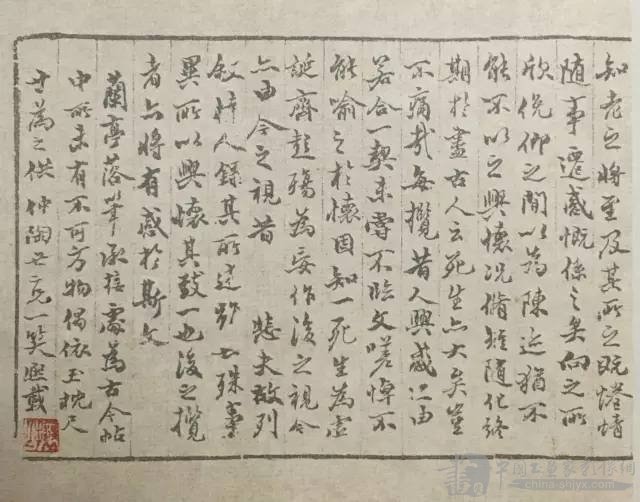 知老之將至及其所之既惓情
随事遷感慨係之矣向之所
欣俛仰之間以為陳迹猶不
能不以之興懷況脩短随化終
期於盡古人云死生亦大矣豈
不痛哉每攬昔人興感之由
若合一契未嘗不臨文嗟悼不
能喻之於懷固知一死生為虛
誕齊彭殤為妄作後之視今
亦由今之視昔 悲夫故列
叙時人錄其所述雖世殊事
異所以興懷其致一也後之攬
者亦將有感於斯文
蘭亭落筆承接處為古今帖
中所未有不可方物偶依玉枕尺
寸為之供 仲陶世兄一笑熙載
china-shjyx.com